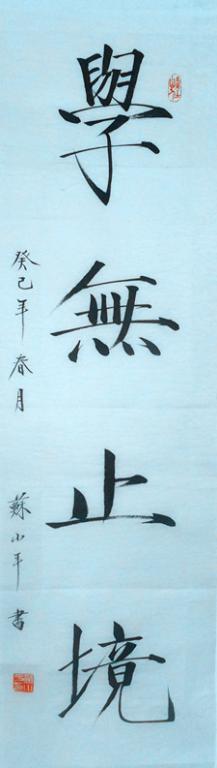 學無止境
癸巳年春月
蘇小平書